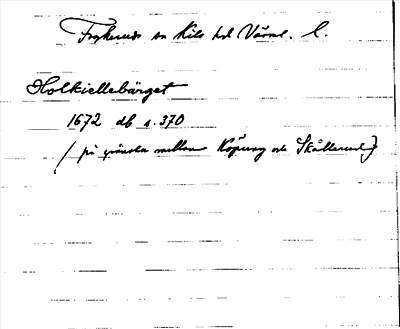 Frykerud sn Kils hd Värml. l.
Holkiellebärget
1672 db s. 370
(på gränsen mellan Köpung och Skållerud)